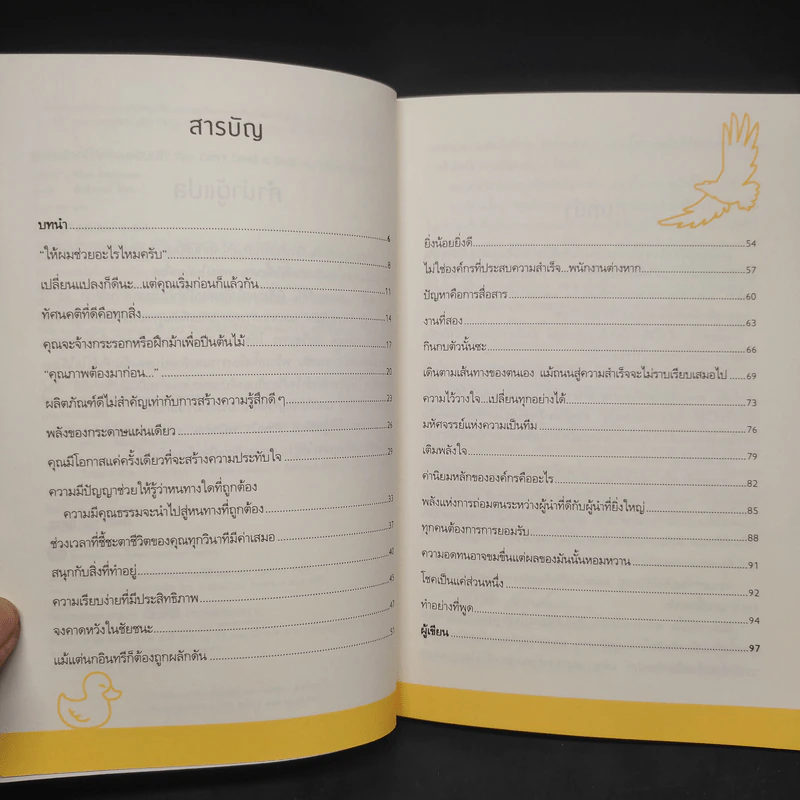 สารบัญ
บทนำ 6
"ให้ผมช่วยอะไรไหมครับ" 8
เปลี่ยนแปลงก็ดีนะ...แต่คุณเริ่มก่อนก็แล้วกัน 11
ทัศนคติที่ดีคือทุกสิ่ง 14
คุณจะจ้างกระรอกหรือฝึกม้าเพื่อปีนต้นไม้ 17
"คุณภาพต้องมาก่อน..." 20
ผลิตภัณฑ์ดีไม่สำคัญเท่ากับการสร้างความรู้สึกดีๆ 23
พลังของกระดาษแผ่นเดียว 26
คุณมีโอกาสแค่ครั้งเดียวที่จะสร้างความประทับใจ 29
ความมีปัญญาช่วยให้รู้ว่าหนทางใดที่ถูกต้อง
ความมีคุณธรรมจะนำไปสู่หนทางที่ถูกต้อง 33
ช่วงเวลาที่ชี้ชะตาชีวิตของคุณทุกวินาทีมีค่าเสมอ 37
สนุกกับสิ่งที่ทำอยู่ 40
ความเรียบง่ายที่มีประสิทธิภาพ 45
จงคาดหวังในชัยชนะ 47
แม้แต่นกอินทรีก็ต้องถูกผลักดัน 51
ยิ่งน้อยยิ่งดี 54
ไม่ใช่องค์กรที่ประสบความสำเร็จ...พนักงานต่างหาก 57
ปัญหาคือการสื่อสาร 60
งานที่สอง 63
กินกบตัวนั้นซะ 66
เดินตามเส้นทางของตนเอง แม้ถนนสู่ความสำเร็จจะไม่ราบเรียบเสมอไป 69
ความไว้วางใจ...เปลี่ยนทุกอย่างได้ 73
มหัศจรรย์แห่งความเป็นทีม 76
เติมพลังใจ 79
ค่านิยมหลักขององค์กรคืออะไร 82
พลังแห่งการถ่อมตนระหว่างผู้นำที่ดีกับผู้นำที่ยิ่งใหญ่ 85
ทุกคนต้องการการยอมรับ 88
ความอดทนอาจขมขื่นแต่ผลของมันนั้นหอมหวาน 91
โชคเป็นแค่ส่วนหนึ่ง 92
ทำอย่างที่พูด 94
ผู้เขียน 97